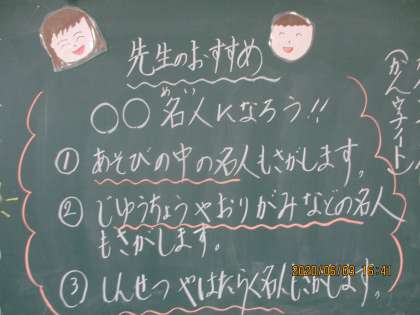 先生のおすすめ
○○名人になろう!!
めい
① あそびの中の名人もさがします。
② じゆうちょうやおりがみなどの名人
もさがします。
③ しんせつやはたらく名人もさがします。
(かん字ノイト)
2020/06/03 16:41